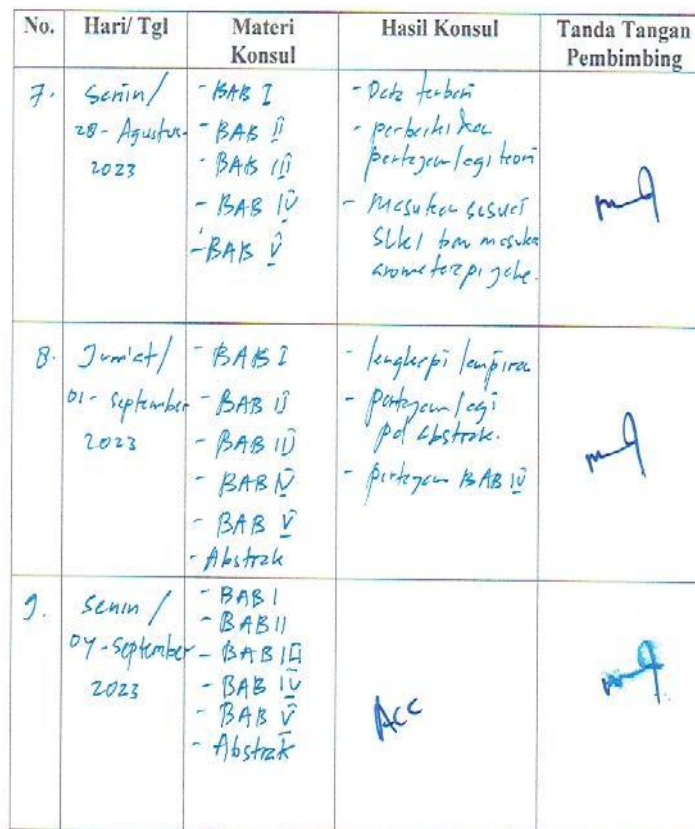 No. Hari/ Tgl Materi Konsul Hasil Konsul Tanda Tangan Pembimbing
7. Senin/
28 - Agustus-
2023
- BAB I
- BAB II
- BAB III
- BAB IV
- BAB V
- Data terbaru
- perbaiki dan
pertajam lagi teori
- Masukan sesuai
SIKI dan masukan
aromaterapi jahe.
8. Jum'at/
01 - September
2023
- BAB I
- BAB II
- BAB III
- BAB IV
- BAB V
- Abstrak
- lengkapi lampiran
- pertajam lagi
pd Abstrak.
- pertajam BAB IV
9. Senin /
04 - September
2023
- BAB I
- BAB II
- BAB III
- BAB IV
- BAB V
- Abstrak
ACC